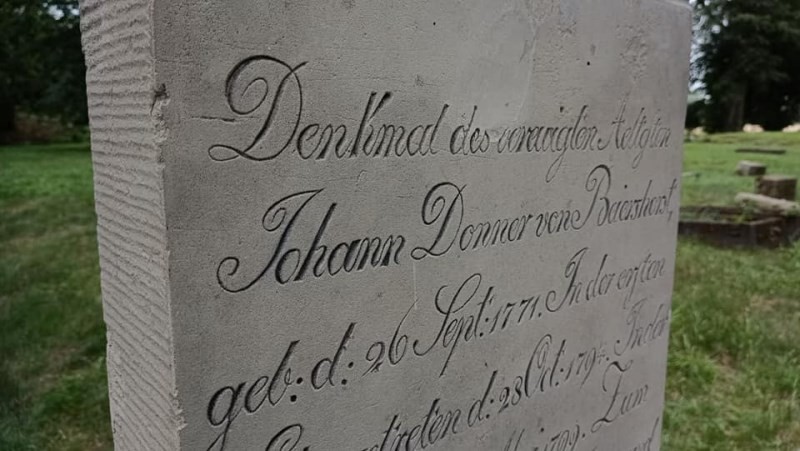 Denkmal des verewigten Aeltesten
Johann Donner von Baiershorst,
geb: d: 26 Sept: 1771. In der ersten
Ehe getreten d: 28 Oct: 179 In der
1799. Zum